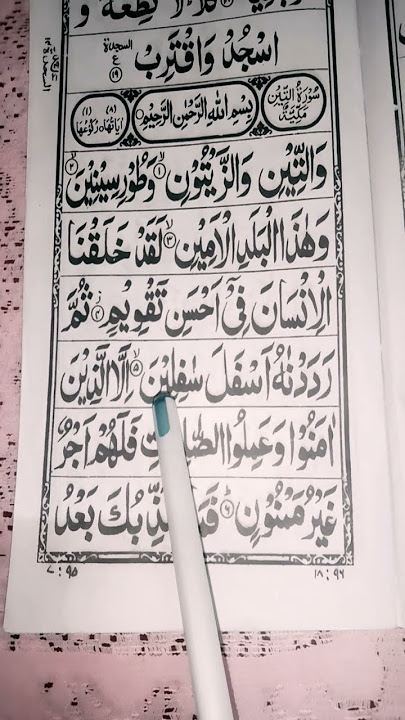 اسْجُدْ وَاقْتَرِبْ
السجدة
ع
۱۹
سُوْرَةُ التِّيْنِ مَكِّيَّةٌ
بِسْمِ اللّٰهِ الرَّحْمٰنِ الرَّحِيْمِ
(۸) اٰيَاتُهَا
(۱) رُكُوْعُهَا
وَالتِّيْنِ وَالزَّيْتُوْنِ ۱ وَطُوْرِ سِيْنِيْنَ ۲
وَهٰذَا الْبَلَدِ الْاَمِيْنِ ۳ لَقَدْ خَلَقْنَا
الْاِنْسَانَ فِيْۤ اَحْسَنِ تَقْوِيْمٍ ۴ ثُمَّ
رَدَدْنٰهُ اَسْفَلَ سٰفِلِيْنَ ۵ اِلَّا الَّذِيْنَ
اٰمَنُوْا وَعَمِلُوا فَلَهُمْ اَجْرٌ
غَيْرُ مَمْنُوْنٍ ۶ بَعْدُ
۷ : ۹۵
۱۸ : ۹۶